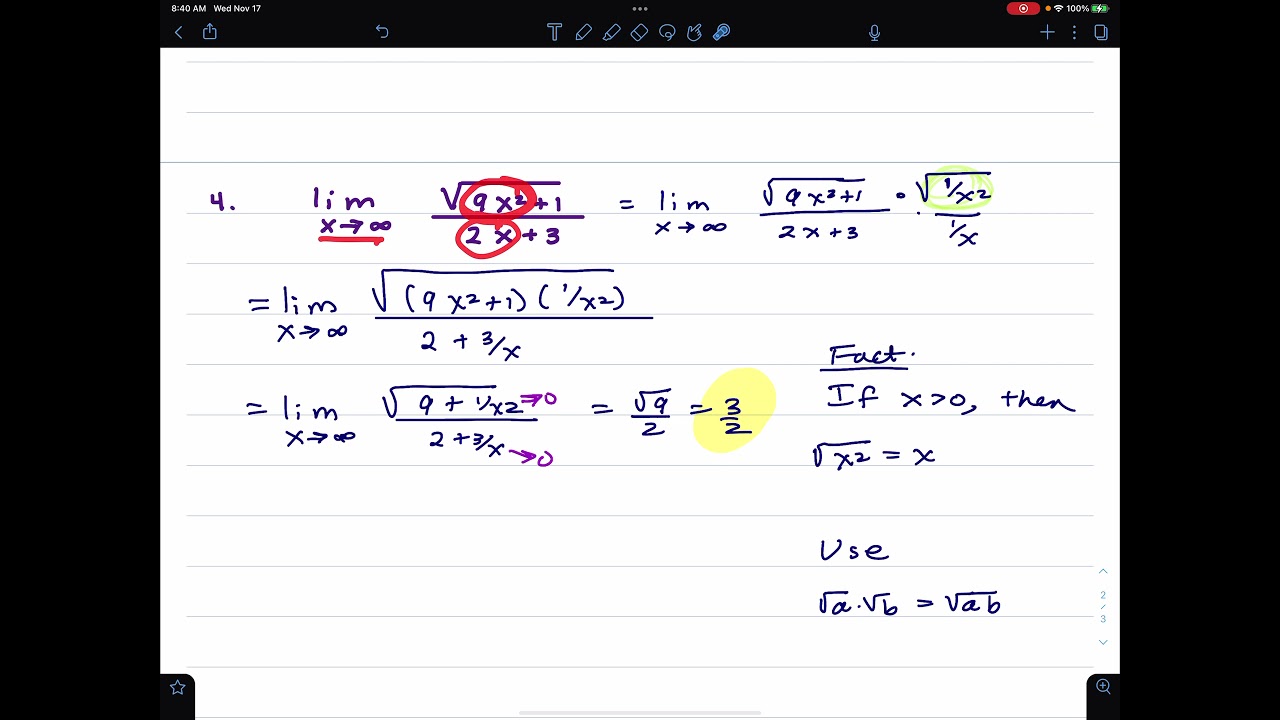 8:40 AM Wed Nov 17
100%
4. lim x→∞ √(9x²+1) / (2x+3) = lim x→∞ √(9x²+1) / (2x+3) · √(1/x²) / (1/x)
= lim x→∞ √((9x²+1)(1/x²)) / (2 + 3/x)
= lim x→∞ √(9 + 1/x²) →0 / (2 + 3/x) →0 = √9 / 2 = 3/2
Fact.
If x>0, then
√x² = x
Use
√a · √b = √ab
2
/
3